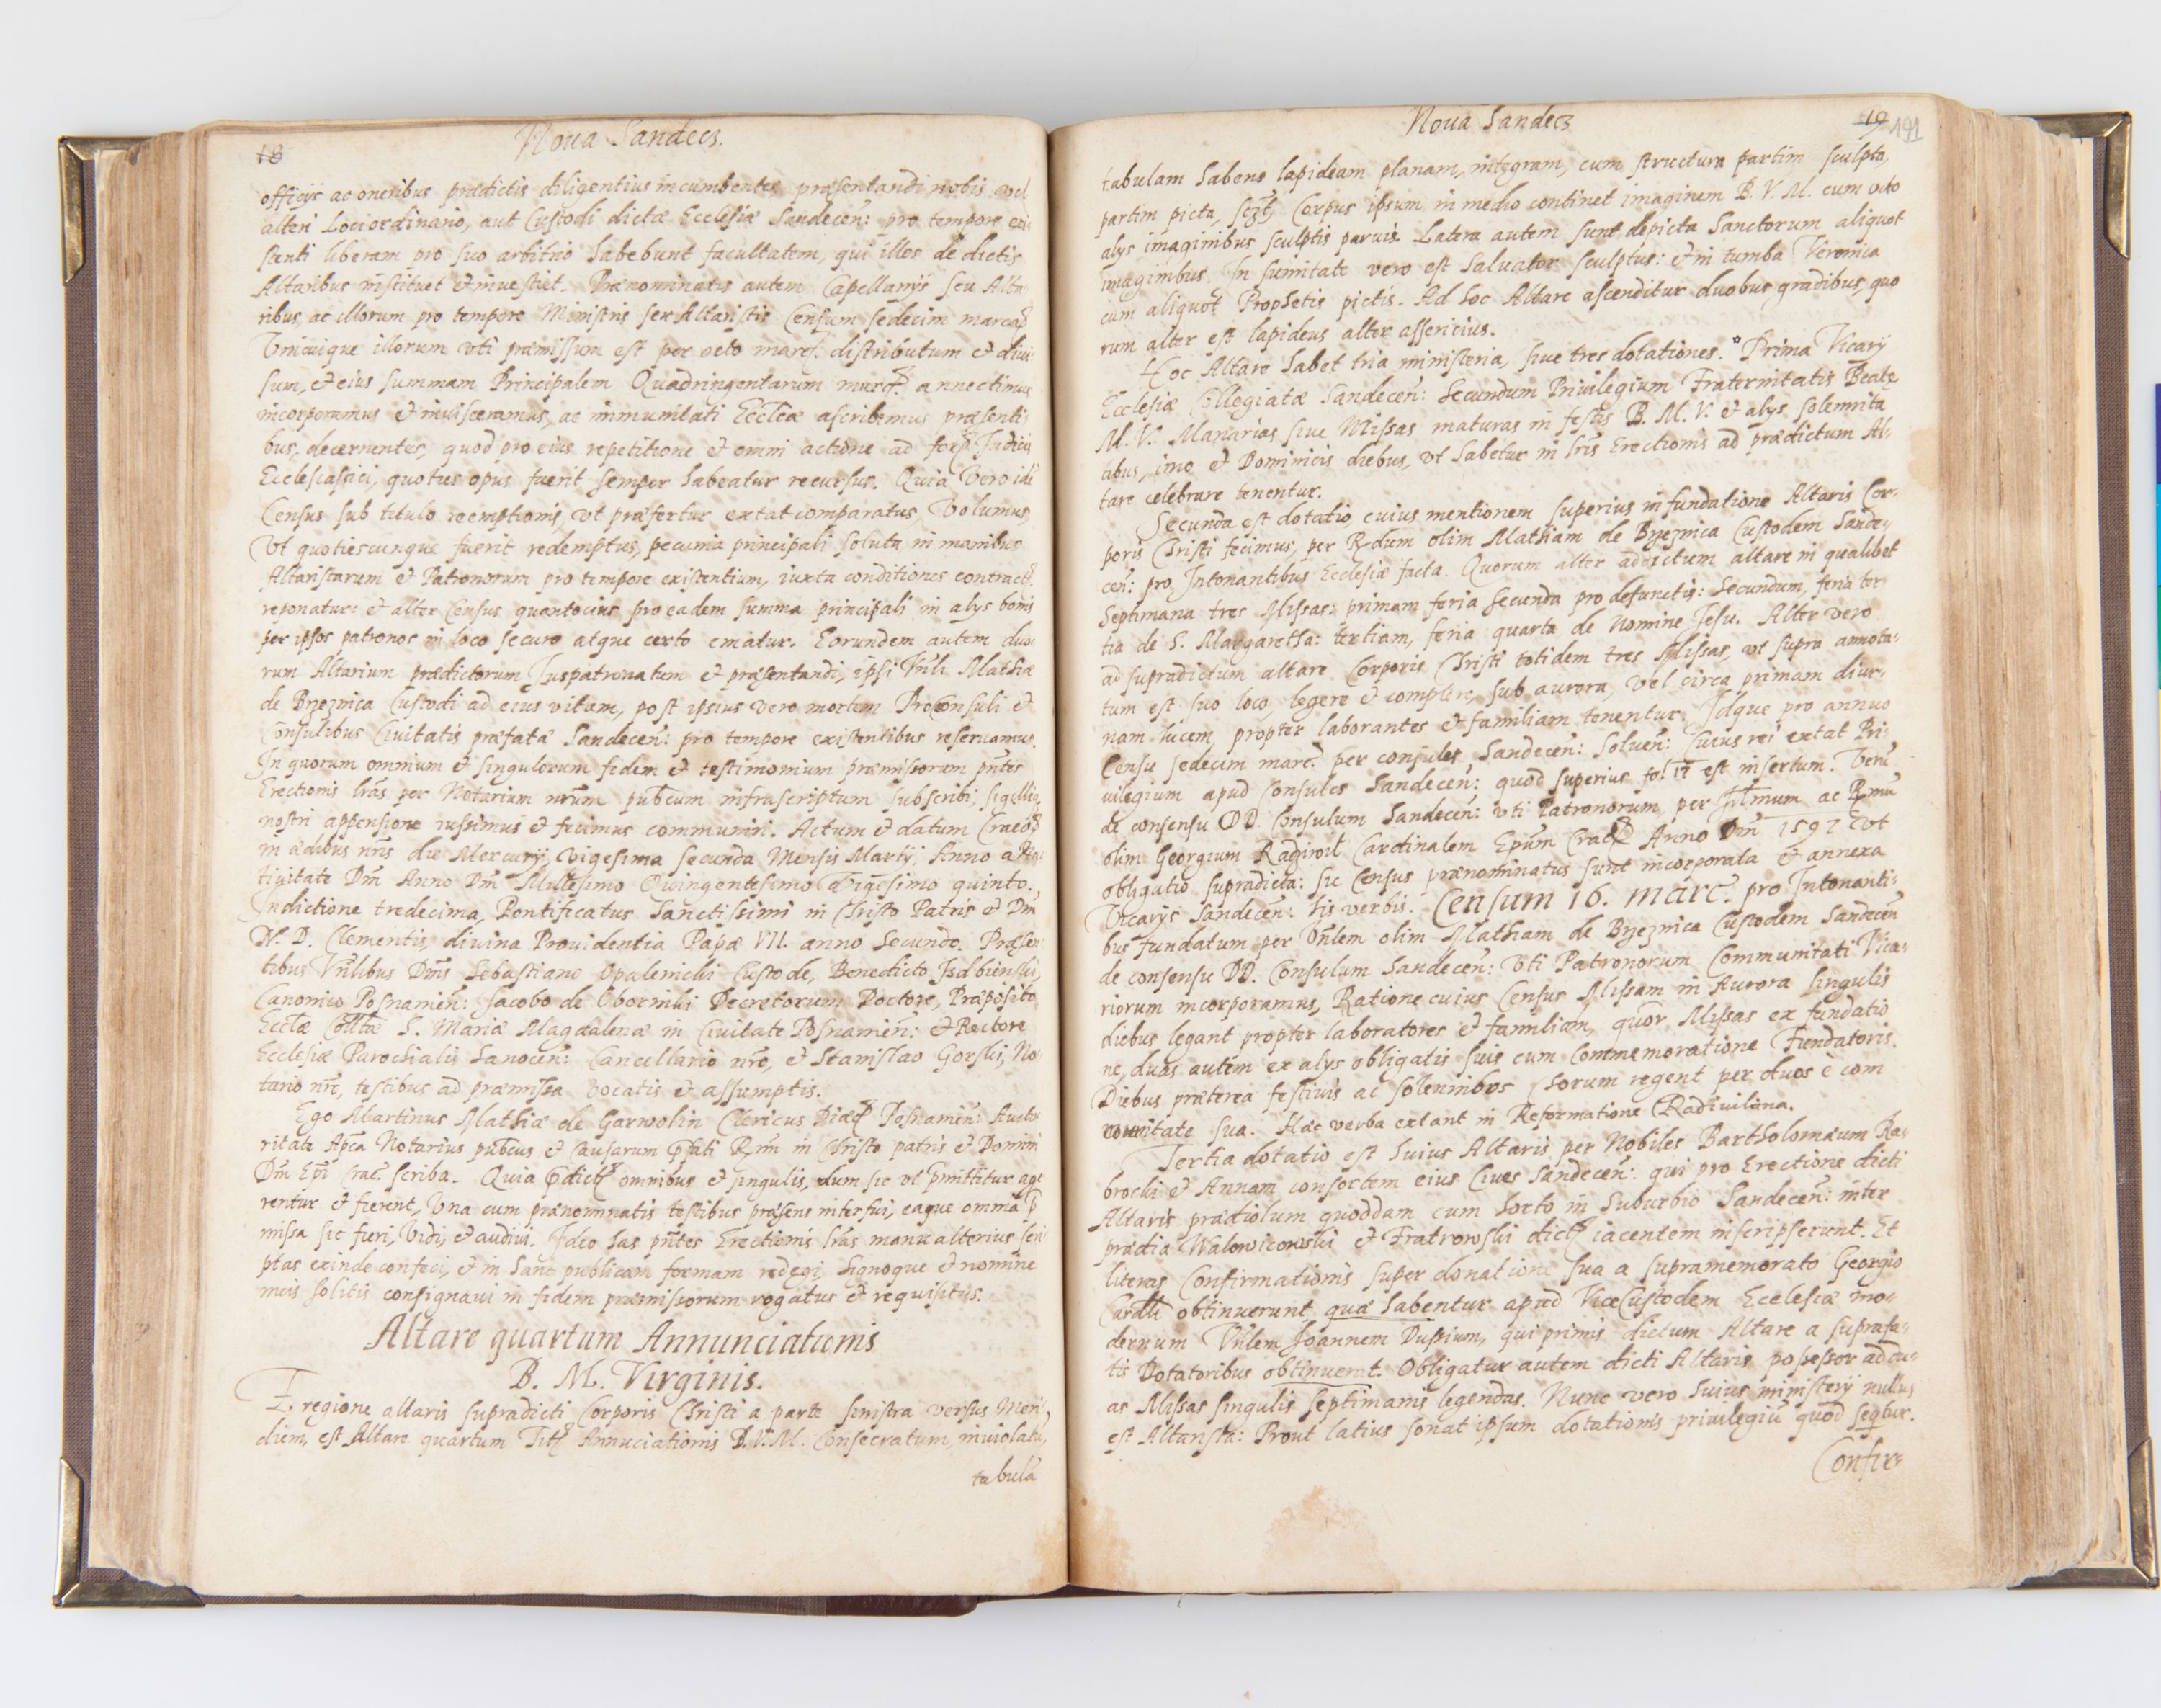 18
Noua Sandecz.
officijs ac oneribus prædictis diligentius incumbentes præsentandi nobis vel
alteri Loci ordinario, aut Custodi dictæ Ecclesiæ Sandecen̄: pro tempore exi-
stenti liberam pro suo arbitrio habebunt facultatem, qui illos de dictis
Altaribus instituet et inuestiet. Prænominatis autem Capellanijs seu Alta-
ribus, ac illorum pro tempore Ministris seu Altaristis Censum sedecim marcaꝝ
Vnicuique illorum vti præmissum est per octo marc. distributum et diui-
sum, et eius summam Principalem Quadringentarum marcꝝ annectimus
incorporamus et inuisceramus, ac immunitati Eccl̄æ ascribimus præsenti-
bus, decernentes, quod pro eius repetitione et omni actione ad
Ecclesiastici, quoties opus fuerit semper habeatur recursus. Quia vero
Census sub titulo reemptionis, vt præfertur extat comparatus, Volumus,
Vt quotiescunque fuerit redemptus, pecunia principali soluta in manibus
Altaristarum et Patronorum pro tempore existentium, iuxta conditiones contractꝰ
reponatur: et alter Census quantocius pro eadem summa principali in alys bonis
per ipsos patronos in loco securo atque certo ematur. Eorundem autem duo-
rum Altarium prædictorum Iuspatronatum et præsentandi, ipsi Vn̄li Mathiæ
de Brzeznica Custodi ad eius vitam, post ipsius vero mortem ProConsuli et
Consulibus Ciuitatis præfatæ Sandecen̄: pro tempore existentibus reseruamus.
In quorum omnium et singulorum fidem et testimonium præmissorum pn̄tes
Erectionis lrās per Notarium nrūm publcum infrascriptum subscribi, sigilliqꝫ
nostri appensione iussimus et fecimus communiri. Actum et datum Cracoꝫ
in ædibus nris die Mercurij, vigesima secunda Mensis Martij, Anno a Na-
tiuitate Dn̄i Anno Dn̄i Millesimo Quingentesimo Vigesimo quinto.,
Indictione tredecima, Pontificatus Sanctissimi in Christo Patris et Dn̄i
N. D. Clementis, diuina Prouidentia Papæ VII. anno Secundo. Præsen-
tibus Vn̄libus Dn̄is Sebastiano Opalenicki Custode, Benedicto Isdbienski,
Canonico Posnanien̄: Jacobo de Oborniki Decretorum Doctore, Præposito
Eccl̄æ Coll̄tæ S. Mariæ Magdalenæ in Ciuitate Posnanien̄: et Rectore
Ecclesiæ Parochialis Sanocen̄: Cancellario nr̄o, et Stanislao Gorski, No-
tario nr̄o, testibus ad præmissa vocatis et assumptis.
Ego Martinus Mathiæ de Garwolin Clericus Diæcꝫ Posnanien̄: Aucto-
ritate Apc̄a Notarius publcus et Causarum p̄fati Rm̄i in Christo patris et Domini
Dn̄i Ep̄i Crac. scriba. Quia p̄dictꝭ omnibus et singulis, dum sic vt p̄mittitur age-
rentur et fierent, Vna cum prænominatis testibus præsens interfui, eaque omnia p̄-
missa sic fieri, vidi, et audiui. Ideo has pn̄tes Erectionis lrās manu alterius scri-
ptas exinde confeci, et in hanc publicam formam redegi, signoque et nomine
meis solitis consignaui in fidem præmissorum rogatus et requisitus.
Altare quartum Annunciationis
B. M. Virginis.
E regione altaris supradicti Corporis Christi a parte sinistra versus Meri-
diem, est Altare quartum Titꝭ Annuciationis B. V. M. Consecratum, inuiolatū,
tabulā
Noua Sandecz
19 191
tabulam habens lapideam planam, integram, cum structura partim sculpta,
partim picta, Corpus ipsum in medio continet imaginem B. V. M. cum octo
alys imaginibus sculptis paruis. Latera autem sunt depicta Sanctorum aliquot
imaginibus. In sumitate vero est Saluator sculptus: et in tumba Veronica
cum aliquot Prophetis pictis. Ad hoc Altare ascenditur duobus gradibus, quo-
rum alter est lapideus alter assericius.
Hoc Altare habet tria ministeria, siue tres dotationes. * Prima Vicarij
Ecclesiæ Collegiatæ Sandecen̄: Secundum Priuilegium Fraternitatis Beatæ
M. V. Manarias siue Missas maturas in festis B. M. V. et alys solemnita-
tibus, imo et Dominicis diebus, vt habetur in lris Erectionis ad prædictum Al-
tare celebrare tenentur.
Secunda est dotatio, cuius mentionem superius in fundatione Altaris Cor-
poris Christi fecimus, per Rdum olim Mathiam de Brzeznica Custodem Sande-
cen̄: pro Intonantibus Ecclesiæ facta. Quorum alter ad dictum altare in qualibet
Septimana tres Missas: primam feria secunda pro defunctis: Secundum, feria ter-
tia de S. Margaretha: tertiam, feria quarta de Nomine Iesu. Alter vero
ad supradictum altare Corporis Christi totidem tres Missas, vt supra annota-
tum est suo loco, legere et complere, sub aurora, vel circa primam diur-
nam lucem, propter laborantes et familiam tenentur. Idque pro annuo
Censu sedecim marc. per consules Sandecen̄: Soluen̄: Cuius rei extat Pri-
uilegium apud Consules Sandecen̄: quod superius fol 17 est insertum. Verū
de consensu DD. Consulum Sandecen̄: vti Patronorum, per Illmum ac Rmū
olim Georgium Radziwił Cardinalem Epūm Cracꝫ Anno Dn̄i 1597 vt
obligatio supradicta: sic Census prænominatus sunt incorporata et annexa
Vicarys Sandecen̄: his verbis. Censum 16. marc. pro Intonanti-
bus fundatum per Vn̄lem olim Mathiam de Brzeznica Custodem Sandecen̄
de consensu DD. Consulum Sandecen̄: vti Patronorum, Communitati Vica-
riorum incorporamus, Ratione cuius Census Missam in Aurora singulis
diebus legant propter laboratores et familiam, quor Missas ex fundatio-
ne, duas autem ex alys obligatis suis cum Commemoratione Fundatoris.
Diebus præterea festiuis ac solennibus Chorum regent per duos è com-
munitate sua. Hæc verba extant in Reformatione Radiuiliana.
Tertia dotatio est huius Altaris per Nobiles Bartholomæum Ra-
brocki et Annam consortem eius Ciues Sandecen̄: qui pro Erectione dicti
Altaris prædiolum quoddam cum horto in Suburbio Sandecen̄: inter
prædia Walowicowski et Fratrowski dictꝭ iacentem inscripserunt. Et
literas Confirmationis super donatione sua a supramemorato Georgio
Cardli obtinuerunt quæ habentur apud ViceCustodem Ecclesiæ mo-
dernum Vn̄lem Joannem Dussium, qui primis dictum Altare a suprafa-
tis Dotatoribus obtinuerat. Obligatur autem dicti Altaris possessor ad du-
as Missas singulis septimanis legendas. Nunc vero huius ministerij nullus
est Altarista: Prout latius sonat ipsum dotationis priuilegiū quod seqtur.
Confir-